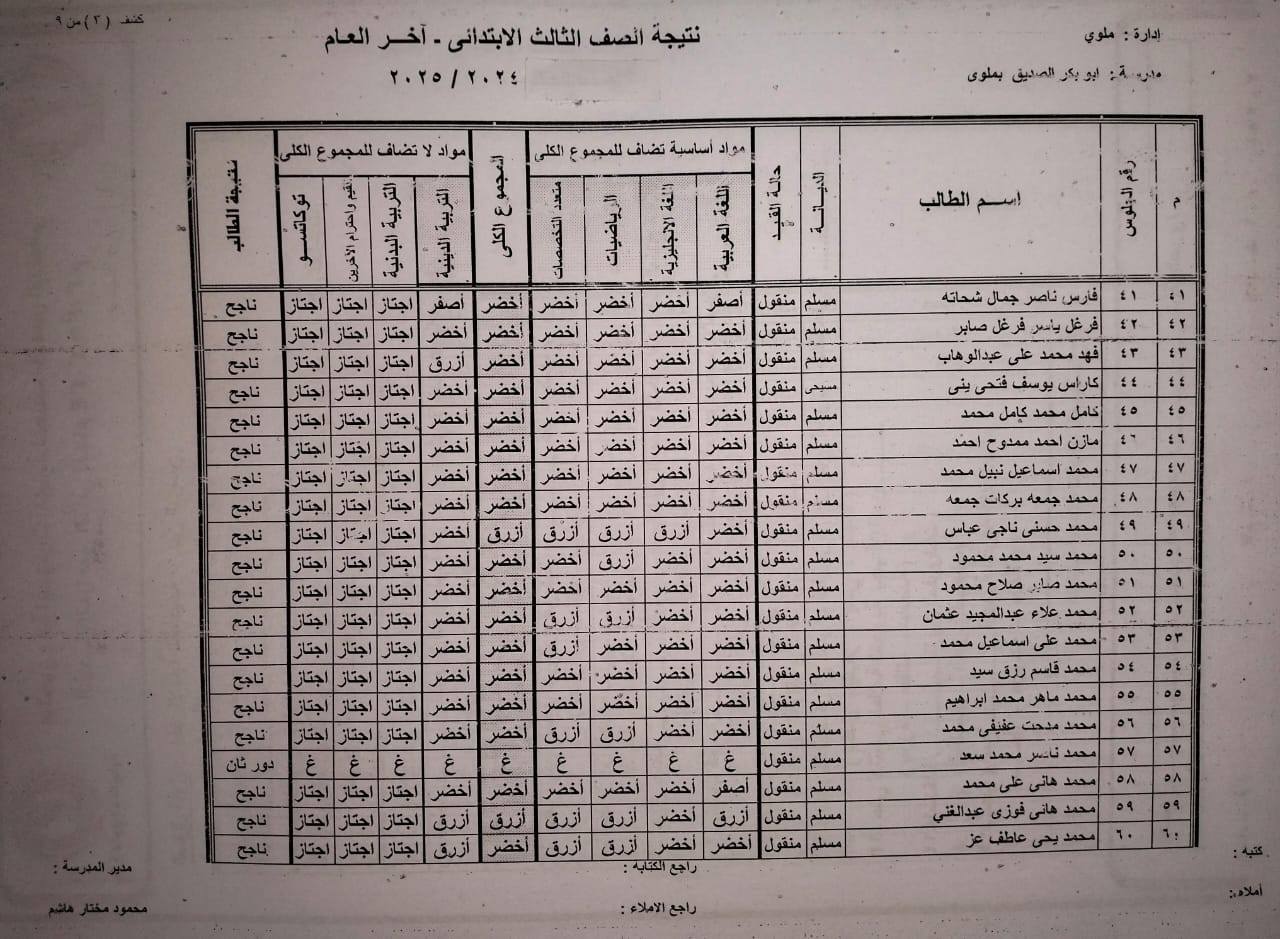 كشف ( ٣ ) من ٩
إدارة : ملوي
نتيجة الصف الثالث الابتدائى - آخر العام
مدرسة : ابو بكر الصديق بملوى
٢٠٢٥ / ٢٠٢٤
م | رقم الجلوس | اسم الطالب | الديانة | حالة القيد | مواد أساسية تضاف للمجموع الكلى | المجموع الكلى | مواد لا تضاف للمجموع الكلى | نتيجة الطالب
اللغة العربية | اللغة الانجليزية | الرياضيات | متعدد التخصصات | التربية الدينية | التربية البدنية | القيم واحترام الأخرين | توكاتسو
٤١ | ٤١ | فارس ناصر جمال شحاته | مسلم | منقول | أصفر | أخضر | أخضر | أخضر | أخضر | أصفر | اجتاز | اجتاز | اجتاز | ناجح
٤٢ | ٤٢ | فرغل ياسر فرغل صابر | مسلم | منقول | أخضر | أخضر | أخضر | أخضر | أخضر | أخضر | اجتاز | اجتاز | اجتاز | ناجح
٤٣ | ٤٣ | فهد محمد على عبدالوهاب | مسلم | منقول | أخضر | أخضر | أخضر | أخضر | أخضر | أزرق | اجتاز | اجتاز | اجتاز | ناجح
٤٤ | ٤٤ | كاراس يوسف فتحى ينى | مسيحى | منقول | أخضر | أخضر | أخضر | أخضر | أخضر | أخضر | اجتاز | اجتاز | اجتاز | ناجح
٤٥ | ٤٥ | كامل محمد كامل محمد | مسلم | منقول | أخضر | أخضر | أخضر | أخضر | أخضر | أخضر | اجتاز | اجتاز | اجتاز | ناجح
٤٦ | ٤٦ | مازن احمد ممدوح احمد | مسلم | منقول | أخضر | أخضر | أخضر | أخضر | أخضر | أخضر | اجتاز | اجتاز | اجتاز | ناجح
٤٧ | ٤٧ | محمد اسماعيل نبيل محمد | مسلم | منقول | أخضر | أخضر | أخضر | أخضر | أخضر | أخضر | اجتاز | اجتاز | اجتاز | ناجح
٤٨ | ٤٨ | محمد جمعه بركات جمعه | مسلم | منقول | أخضر | أخضر | أخضر | أخضر | أخضر | أخضر | اجتاز | اجتاز | اجتاز | ناجح
٤٩ | ٤٩ | محمد حسنى ناجى عباس | مسلم | منقول | أخضر | أزرق | أزرق | أزرق | أزرق | أخضر | اجتاز | اجتاز | اجتاز | ناجح
٥٠ | ٥٠ | محمد سيد محمد محمود | مسلم | منقول | أخضر | أخضر | أزرق | أخضر | أخضر | أخضر | اجتاز | اجتاز | اجتاز | ناجح
٥١ | ٥١ | محمد صابر صلاح محمود | مسلم | منقول | أخضر | أخضر | أخضر | أخضر | أخضر | أخضر | اجتاز | اجتاز | اجتاز | ناجح
٥٢ | ٥٢ | محمد علاء عبدالمجيد عثمان | مسلم | منقول | أخضر | أخضر | أزرق | أزرق | أخضر | أخضر | اجتاز | اجتاز | اجتاز | ناجح
٥٣ | ٥٣ | محمد على اسماعيل محمد | مسلم | منقول | أخضر | أخضر | أخضر | أزرق | أخضر | أخضر | اجتاز | اجتاز | اجتاز | ناجح
٥٤ | ٥٤ | محمد قاسم رزق سيد | مسلم | منقول | أخضر | أخضر | أخضر | أخضر | أخضر | أخضر | اجتاز | اجتاز | اجتاز | ناجح
٥٥ | ٥٥ | محمد ماهر محمد ابراهيم | مسلم | منقول | أخضر | أخضر | أخضر | أخضر | أخضر | أخضر | اجتاز | اجتاز | اجتاز | ناجح
٥٦ | ٥٦ | محمد مدحت عفيفى محمد | مسلم | منقول | أخضر | أخضر | أزرق | أزرق | أخضر | أخضر | اجتاز | اجتاز | اجتاز | ناجح
٥٧ | ٥٧ | محمد ناصر محمد سعد | مسلم | منقول | غ | غ | غ | غ | غ | غ | غ | غ | غ | دور ثان
٥٨ | ٥٨ | محمد هانى على محمد | مسلم | منقول | أصفر | أخضر | أخضر | أخضر | أخضر | أخضر | اجتاز | اجتاز | اجتاز | ناجح
٥٩ | ٥٩ | محمد هانى فوزى عبدالغني | مسلم | منقول | أزرق | أخضر | أزرق | أزرق | أزرق | أزرق | اجتاز | اجتاز | اجتاز | ناجح
٦٠ | ٦٠ | محمد يحى عاطف عز | مسلم | منقول | أخضر | أخضر | أزرق | أزرق | أخضر | أزرق | اجتاز | اجتاز | اجتاز | ناجح
كتبه :
راجع الكتابه :
مدير المدرسة :
أملاه :
راجع الاملاء :
محمود مختار هاشم